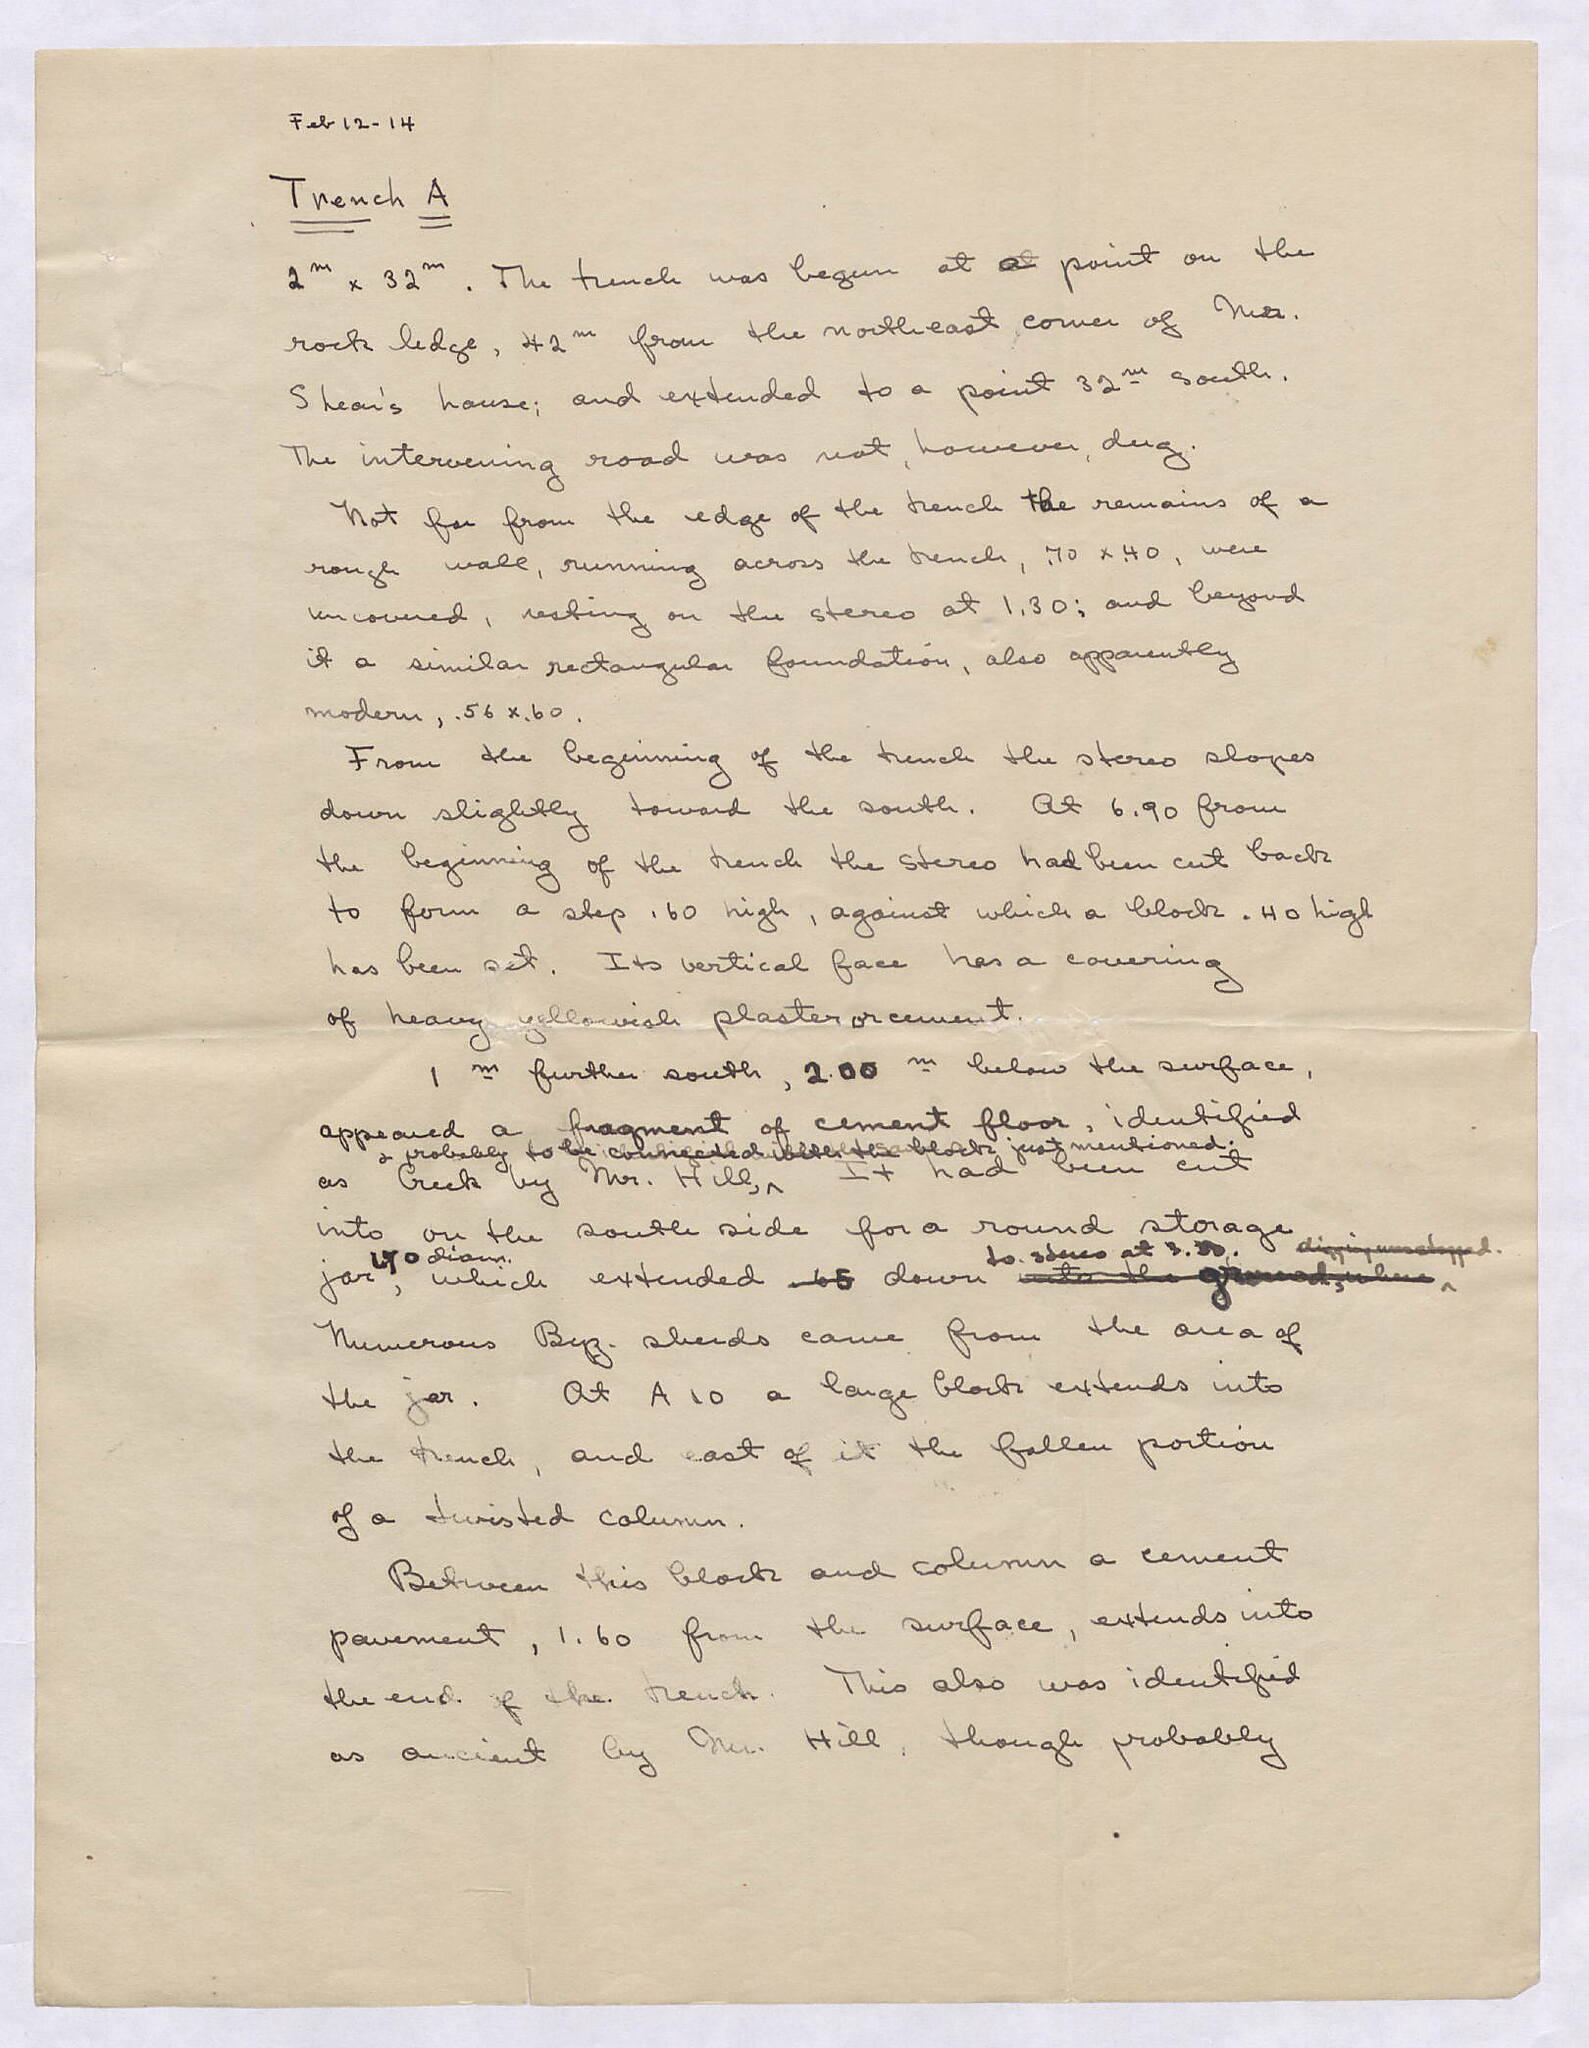 Feb 12-14
Trench A
2m x 32m. The trench was begun at a point on the
rock ledge, 42m from the northeast corner of Mr.
Shear's house; and extended to a point 32m south.
The intervening road was not, however, dug.
Not far from the edge of the trench the remains of a
rough wall, running across the trench, .70 x .40, were
uncovered, resting on the stereo at 1.30; and beyond
it a similar rectangular foundation, also apparently
modern, .56 x .60.
From the beginning of the trench the stereo slopes
down slightly toward the south. At 6.90 from
the beginning of the trench the stereo had been cut back
to form a step .60 high, against which a block .40 high
has been set. Its vertical face has a covering
of heavy yellowish plaster or cement.
1m further south, 2.00m below the surface,
appeared a fragment of cement floor, identified
& probably to be connected with the block just mentioned.
as Greek by Mr. Hill, ^ It had been cut
into on the south side for a round storage
diam. to stereo at digging was stopped.
jar, which extended 65 down into the ground, where ^
Numerous Byz. sherds came from the area of
the jar. At A 10 a large block extends into
the trench, and east of it the fallen portion
of a twisted column.
Between this block and column a cement
pavement, 1.60 from the surface, extends into
the end of the trench. This also was identified
as ancient by Mr. Hill, though probably